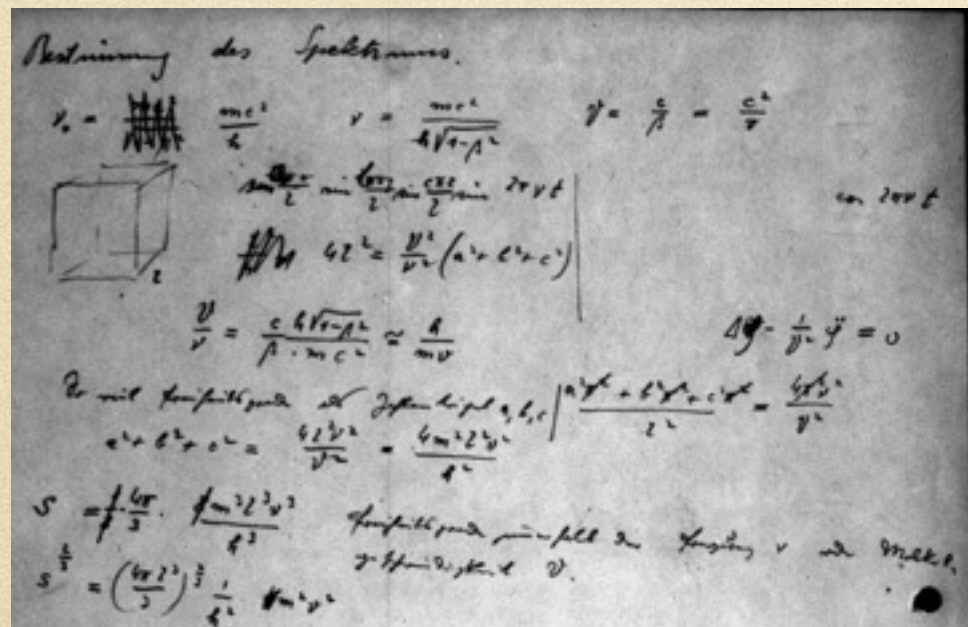 Bestimmung des Spektrums.
ν₀ = mc²/h ν = mc²/(h√(1-β²)) V = c/β = c²/v
sin aπx/l sin bπy/l sin cπz/l sin 2πνt cos 2πνt
4l² = V²/ν² (a² + b² + c²)
l
V/ν = c h√(1-β²)/(β · mc²) ≃ h/mv
Δφ - 1/V² φ̈ = 0
So viel Freiheitsgrade als Zahlentripel a, b, c | (a²π² + b²π² + c²π²)/l² = 4π²ν²/V²
a² + b² + c² = 4l²ν²/V² = 4m²l²v²/h²
S = 4π/3 · m³l³v³/h³ Freiheitsgrade der ν oder
S^(2/3) = (4πl³/3)^(2/3) 1/h² m²v² geschwindigkeit v.